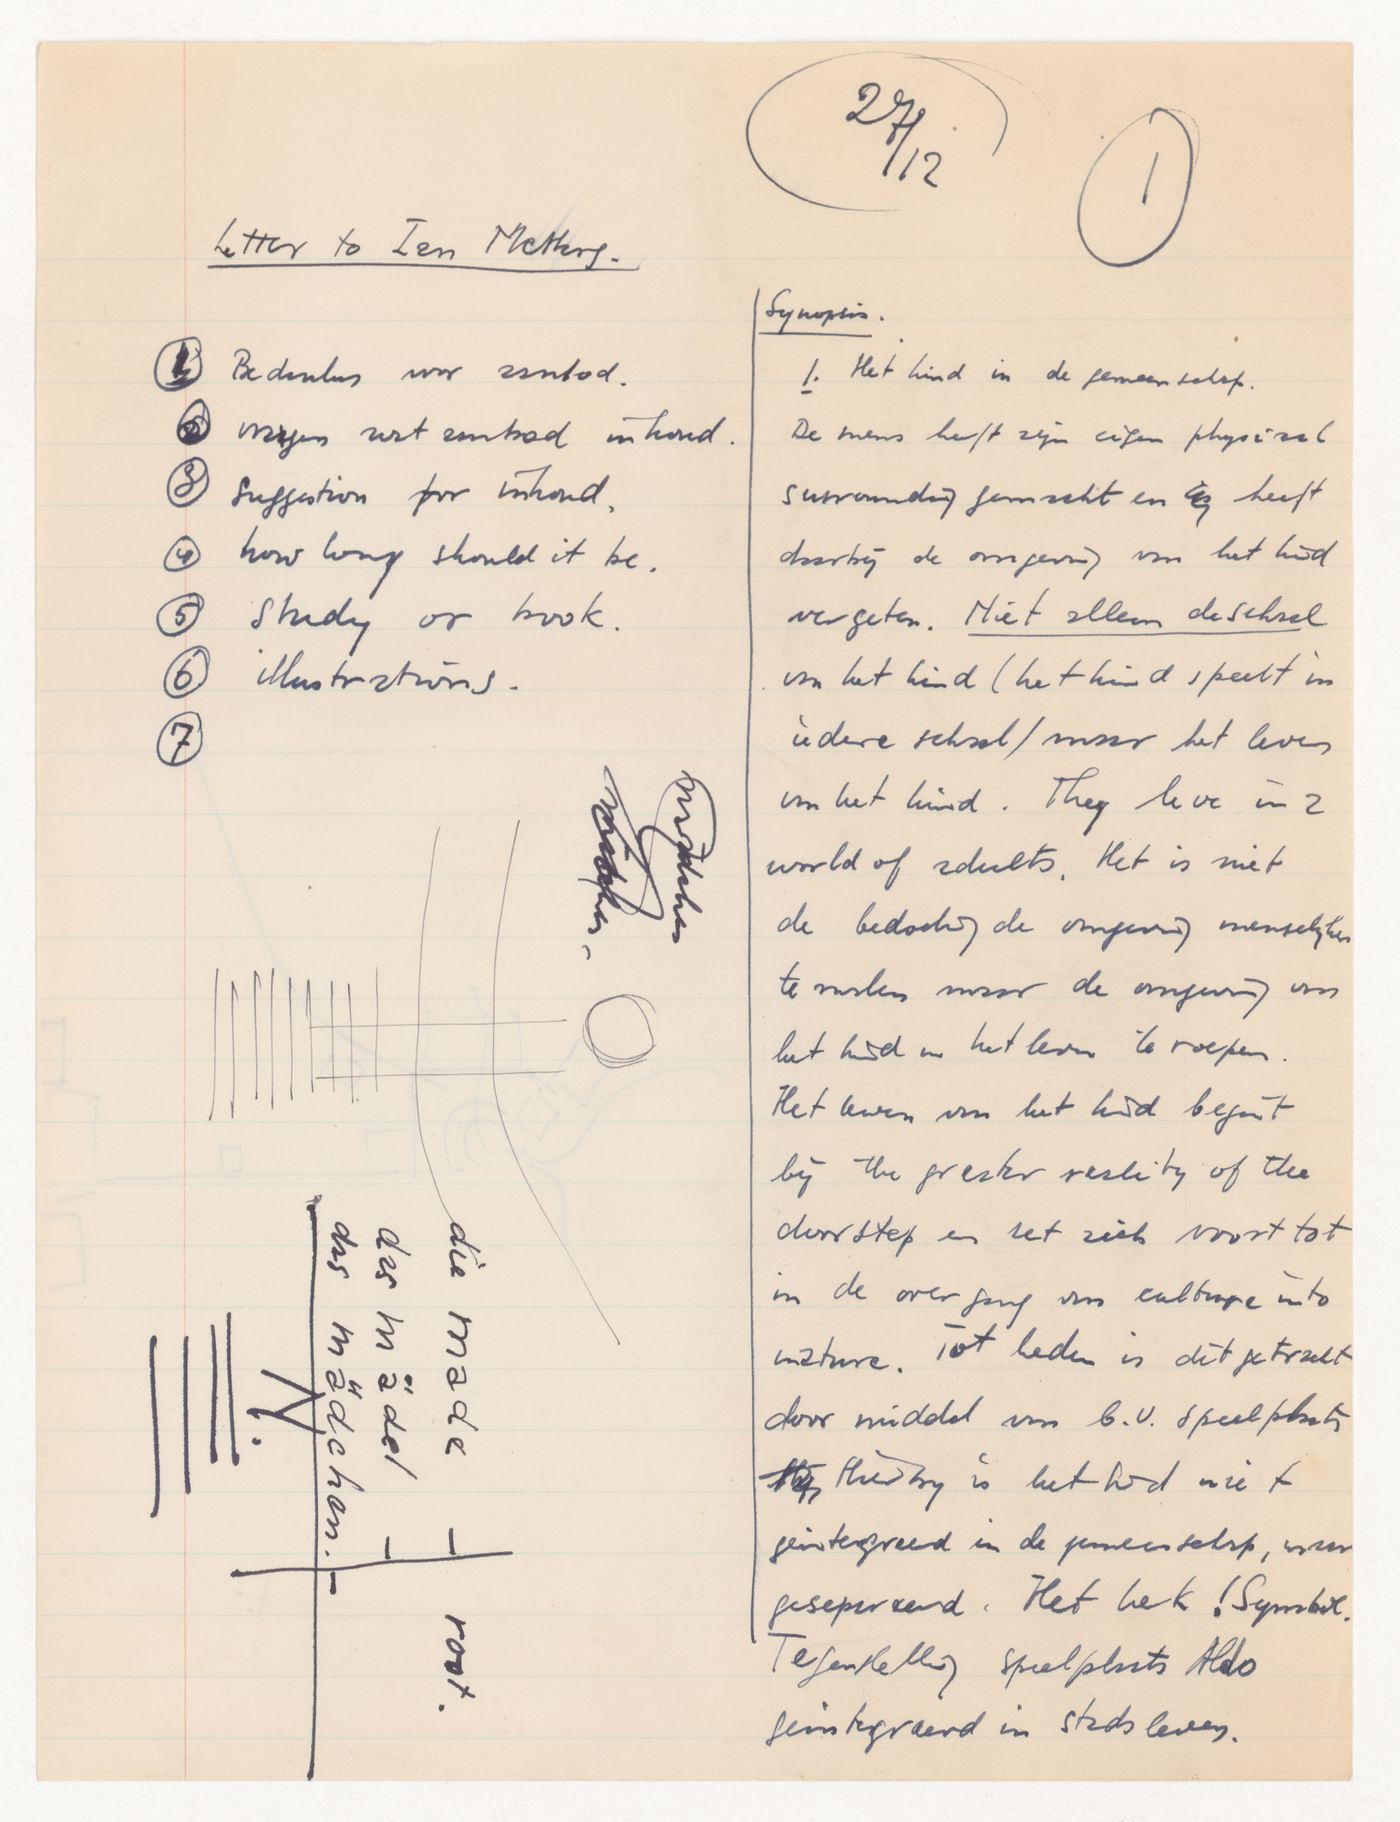 27/12
1
Letter to Ian
1 Bedanken voor aanbod.
2 vragen wat aanbod inhoud.
3 suggestion for inhoud.
4 how long should it be.
5 Study or book.
6 illustrations.
7
mädchen
mädchen.
die made
das mädel
das mädchen.
root.
Synopsis.
1. Het kind in de gemeenschap.
De mens heeft zijn eigen physical
surrounding gemaakt en heeft
daarbij de omgeving van het kind
vergeten. Niet alleen de school
van het kind (het kind speelt in
iedere school / maar het leven
van het kind. They live in a
world of adults. Het is niet
de bedoeling de omgeving menselijker
te maken maar de omgeving van
het kind in het leven te roepen.
Het leven van het kind begint
bij the greater reality of the
doorstep en zet zich voort tot
in de overgang van culture into
nature. Tot heden is dit getracht
door middel van b.v. speelplaats
Hierbij is het kind niet
geintegreerd in de gemeenschap, maar
gesepareerd. Het hek ! Symbol.
Tegenstelling speelplaats Aldo
geintegreerd in stadsleven.